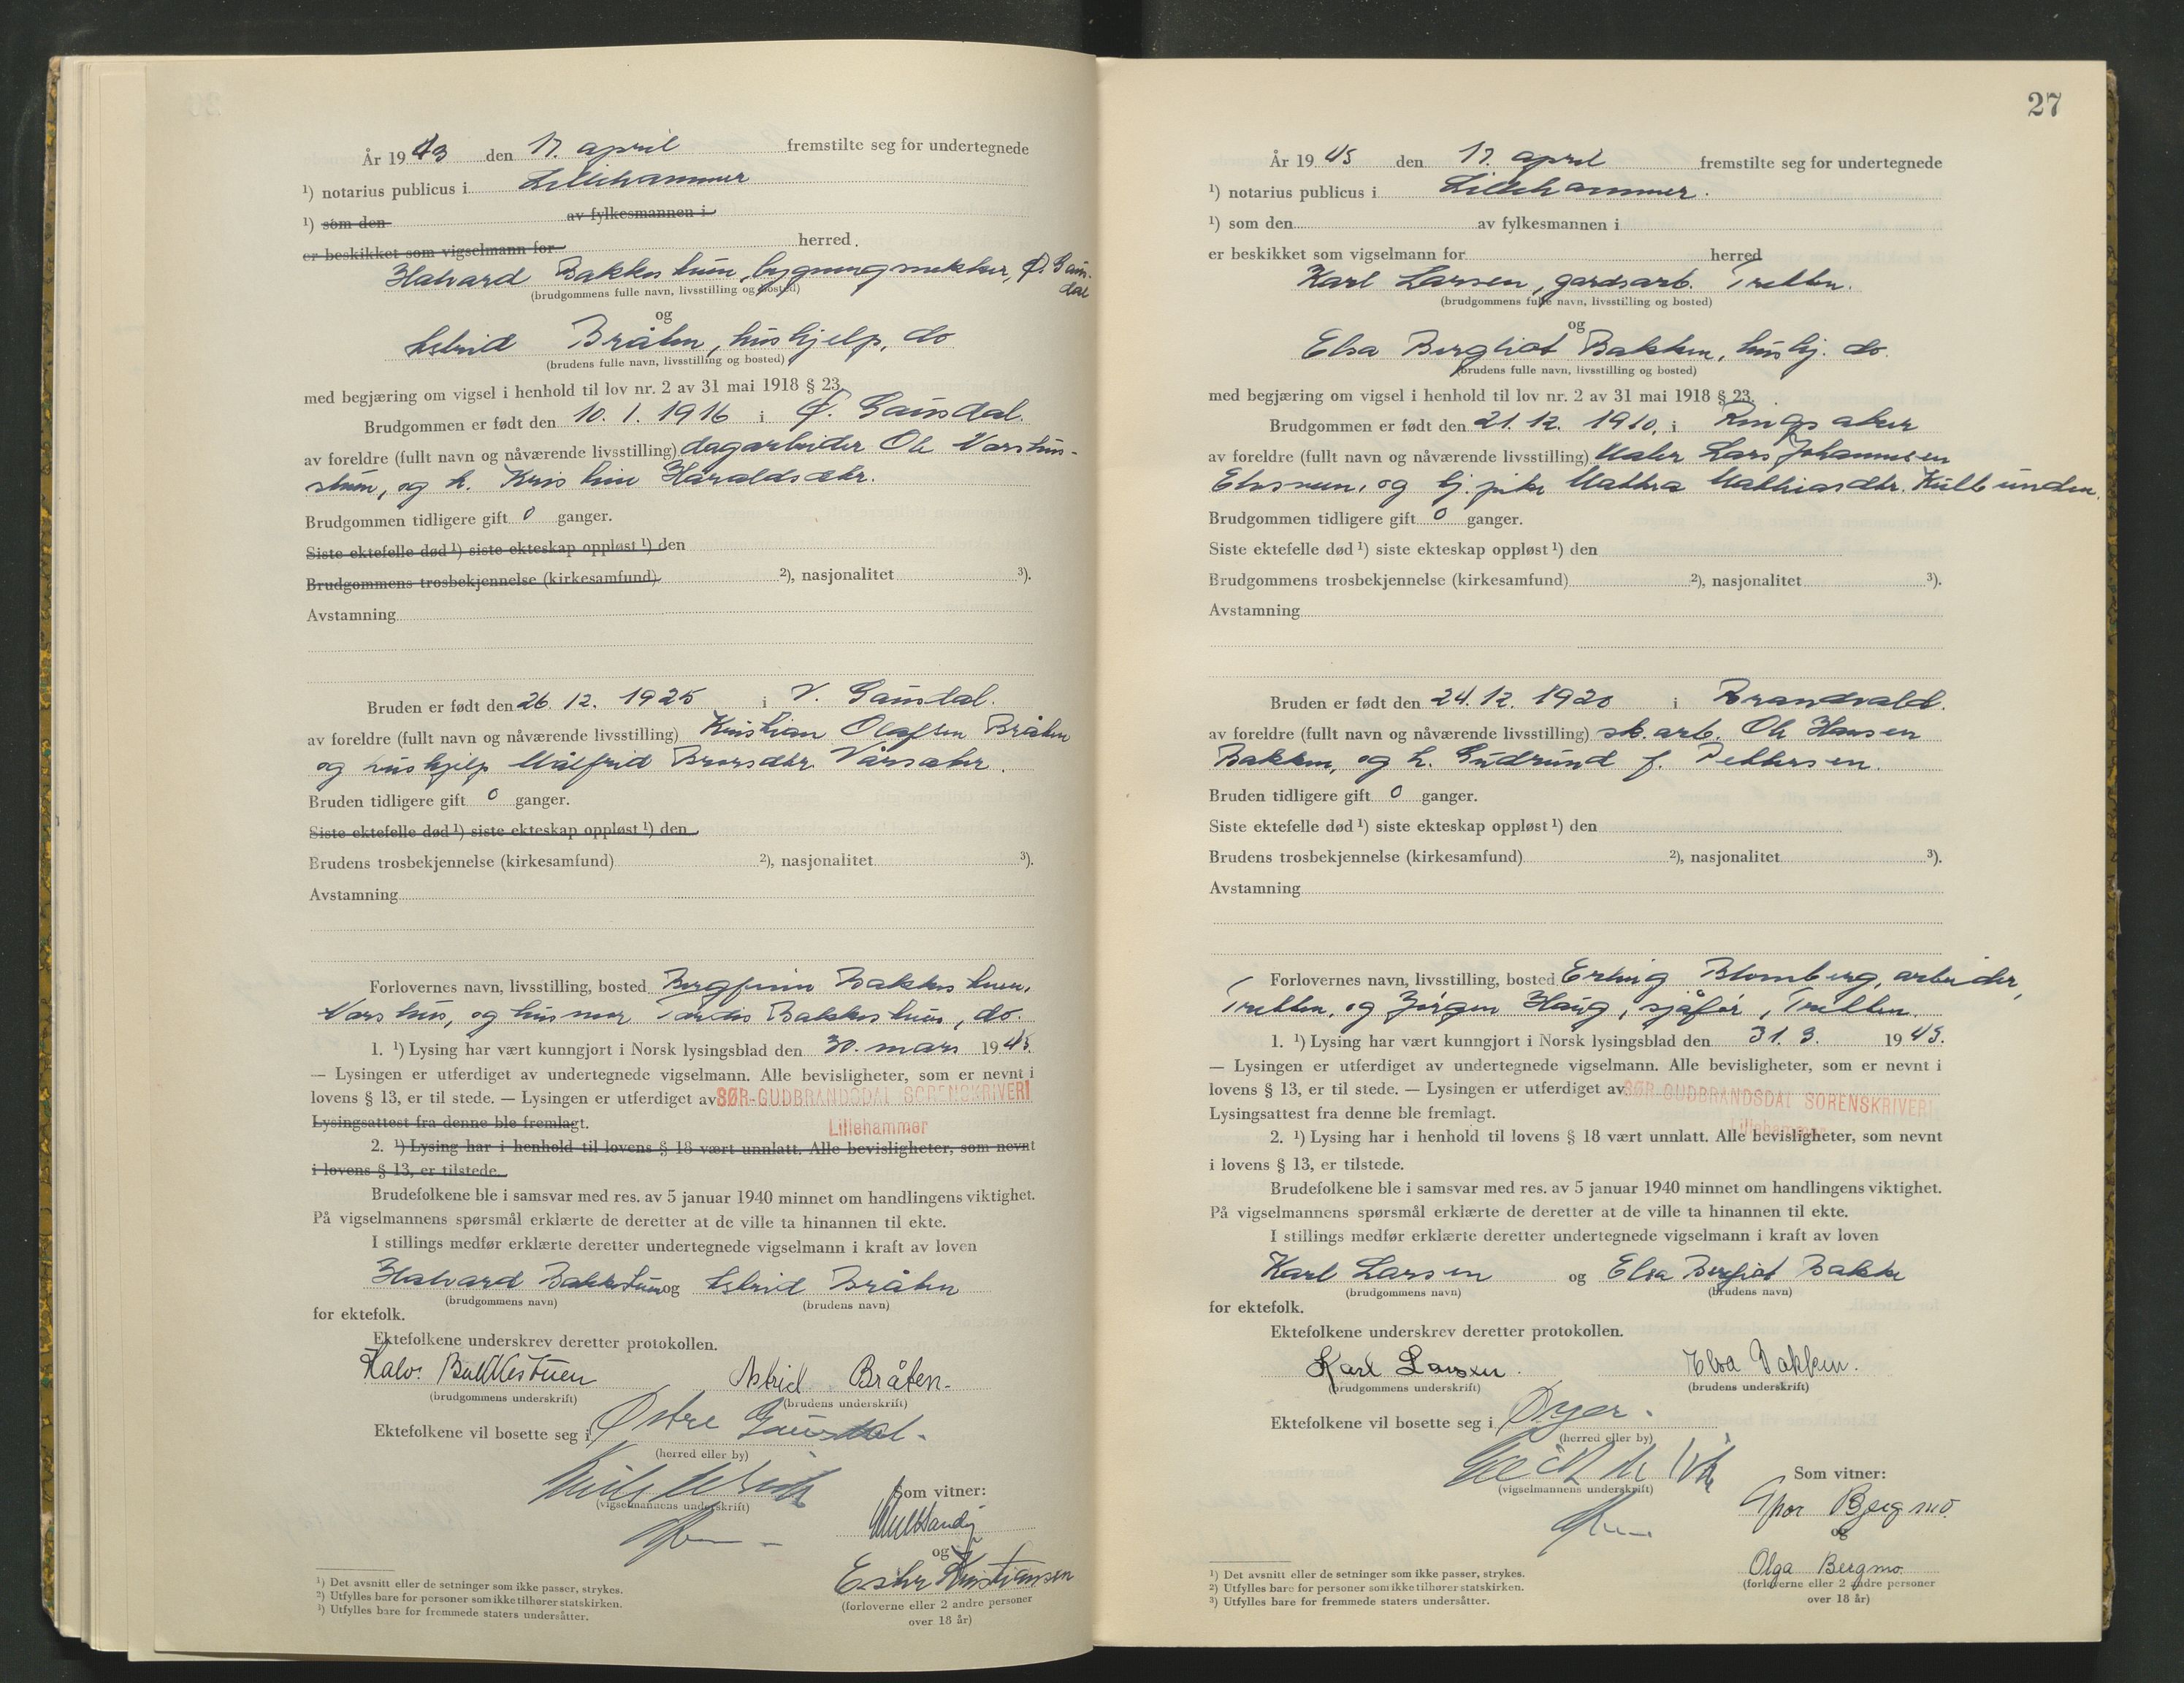 År 1943 den 17. april fremstilte seg for undertegnede
¹) notarius publicus i Lillehammer
¹) som den av fylkesmannen i
er beskikket som vigselmann for herred.
Halvard Bakkestuen, bygningssnekker, Ø. Gausdal
(brudgommens fulle navn, livsstilling og bosted)
og
Astrid Bråten, hushjelp, do
(brudens fulle navn, livsstilling og bosted)
med begjæring om vigsel i henhold til lov nr. 2 av 31 mai 1918 § 23.
Brudgommen er født den 10. 1. 1916 i Ø. Gausdal.
av foreldre (fullt navn og nåværende livsstilling) dagarbeider Ole
og h. Kristine Haraldsdtr.
Brudgommen tidligere gift 0 ganger.
Siste ektefelle død ¹) siste ekteskap oppløst ¹) den
Brudgommens trosbekjennelse (kirkesamfund) ²), nasjonalitet ³).
Avstamning
Bruden er født den 26. 12. 1925 i V. Gausdal.
av foreldre (fullt navn og nåværende livsstilling) Kristian Olafsen Bråten
og hushjelp Målfrid
Bruden tidligere gift 0 ganger.
Siste ektefelle død ¹) siste ekteskap oppløst ¹) den
Brudens trosbekjennelse (kirkesamfund) ²), nasjonalitet ³).
Avstamning
Forlovernes navn, livsstilling, bosted Bergfinn Bakkestuen,
og husmor Bakkestuen, do.
1. ¹) Lysing har vært kunngjort i Norsk lysingsblad den 30. mars 1945.
— Lysingen er utferdiget av undertegnede vigselmann. Alle bevisligheter, som er nevnt i
lovens § 13, er til stede. — Lysingen er utferdiget av SØR-GUDBRANDSDAL SORENSKRIVERI
Lysingsattest fra denne ble fremlagt. Lillehammer
2. ¹) Lysing har i henhold til lovens § 18 vært unnlatt. Alle bevisligheter, som nevnt
i lovens § 13, er tilstede.
Brudefolkene ble i samsvar med res. av 5 januar 1940 minnet om handlingens viktighet.
På vigselmannens spørsmål erklærte de deretter at de ville ta hinannen til ekte.
I stillings medfør erklærte deretter undertegnede vigselmann i kraft av loven
Halvard Bakkestuen og Astrid Bråten
(brudgommens navn) (brudens navn)
for ektefolk.
Ektefolkene underskrev deretter protokollen.
Halv. Bakkestuen Astrid Bråten.
(brudgommens underskrift) (brudens underskrift)
Ektefolkene vil bosette seg i Østre Gausdal.
(herred eller by)
(vigselmannens underskrift)
Som vitner:
og
Ester Kristiansen
(forloverne eller 2 andre personer
over 18 år)
¹) Det avsnitt eller de setninger som ikke passer, strykes.
²) Utfylles bare for personer som ikke tilhører statskirken.
³) Utfylles bare for fremmede staters undersåtter.
27
År 1945 den 17. april fremstilte seg for undertegnede
¹) notarius publicus i Lillehammer.
¹) som den av fylkesmannen i
er beskikket som vigselmann for herred
Karl Larsen, gardsarb. Tretten.
(brudgommens fulle navn, livsstilling og bosted)
og
Elsa Bergliot Bakken, hushj. do.
(brudens fulle navn, livsstilling og bosted)
med begjæring om vigsel i henhold til lov nr. 2 av 31 mai 1918 § 23.
Brudgommen er født den 21. 12. 1910. i Ringsaker
av foreldre (fullt navn og nåværende livsstilling) Maler Lars Johannesen
og hj. pike Mathea Mathiasdtr.
Brudgommen tidligere gift 0 ganger.
Siste ektefelle død ¹) siste ekteskap oppløst ¹) den
Brudgommens trosbekjennelse (kirkesamfund) ²), nasjonalitet ³).
Avstamning
Bruden er født den 24. 12. 1920 i Brandvald.
av foreldre (fullt navn og nåværende livsstilling) sk. arb. Ole Hansen
Bakken, og h. Gudrund f. Pettersen.
Bruden tidligere gift 0 ganger.
Siste ektefelle død ¹) siste ekteskap oppløst ¹) den
Brudens trosbekjennelse (kirkesamfund) ²), nasjonalitet ³).
Avstamning
Forlovernes navn, livsstilling, bosted Erling Blomberg, arbeider,
Tretten, og Jørgen Haug, sjåfør, Tretten.
1. ¹) Lysing har vært kunngjort i Norsk lysingsblad den 31. 3. 1945.
— Lysingen er utferdiget av undertegnede vigselmann. Alle bevisligheter, som er nevnt i
lovens § 13, er til stede. — Lysingen er utferdiget av SØR-GUDBRANDSDAL SORENSKRIVERI
Lysingsattest fra denne ble fremlagt. Lillehammer
2. ¹) Lysing har i henhold til lovens § 18 vært unnlatt. Alle bevisligheter, som nevnt
i lovens § 13, er tilstede.
Brudefolkene ble i samsvar med res. av 5 januar 1940 minnet om handlingens viktighet.
På vigselmannens spørsmål erklærte de deretter at de ville ta hinannen til ekte.
I stillings medfør erklærte deretter undertegnede vigselmann i kraft av loven
Karl Larsen og Elsa Bergliot Bakke
(brudgommens navn) (brudens navn)
for ektefolk.
Ektefolkene underskrev deretter protokollen.
Karl Larsen. Elsa Bakken.
(brudgommens underskrift) (brudens underskrift)
Ektefolkene vil bosette seg i Øyer.
(herred eller by)
(vigselmannens underskrift)
Som vitner:
Thor Bergmo.
og
Olga Bergmo.
(forloverne eller 2 andre personer
over 18 år)
¹) Det avsnitt eller de setninger som ikke passer, strykes.
²) Utfylles bare for personer som ikke tilhører statskirken.
³) Utfylles bare for fremmede staters undersåtter.